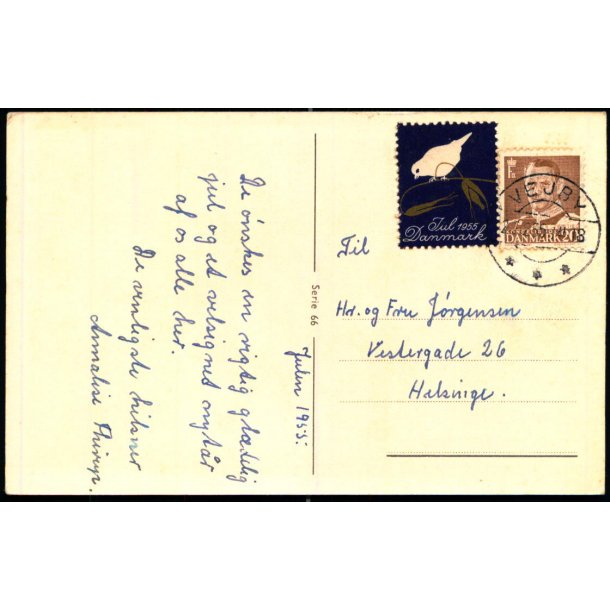 Julen 1955.
De ønskes en rigtig glædelig
jul og et velsignet nytår
af os alle her.
De venligste hilsner
Annalise
Serie 66
Jul 1955
Danmark
VEJBY
DANMARK 20
Til
Hr. og Fru Jørgensen
Vestergade 26
Helsinge.